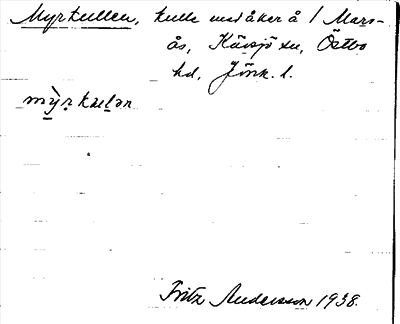 Myrkullen, kulle med åker å / Mars-
ås, Kävsjö sn, Östbo
hd, Jönk. l.
mỳrkulən
Fritz Andersson 1938.